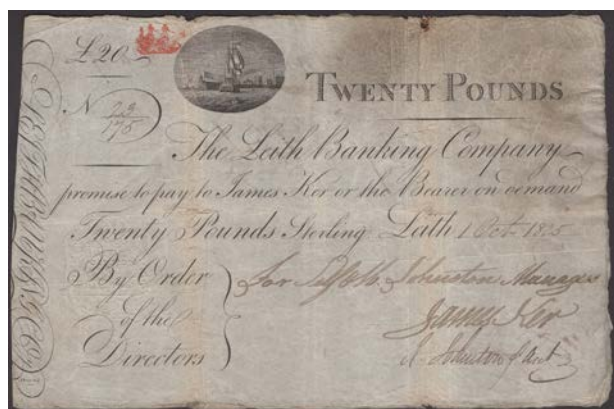 £20
TWENTY POUNDS
N 23/175
The Leith Banking Company
promise to pay to James Ker or the Bearer on demand
Twenty Pounds Sterling. Leith 1 Oct. 1825
By Order
of the
Directors
for Self & H. Johnston Manager
James Ker
Johnston J Acct